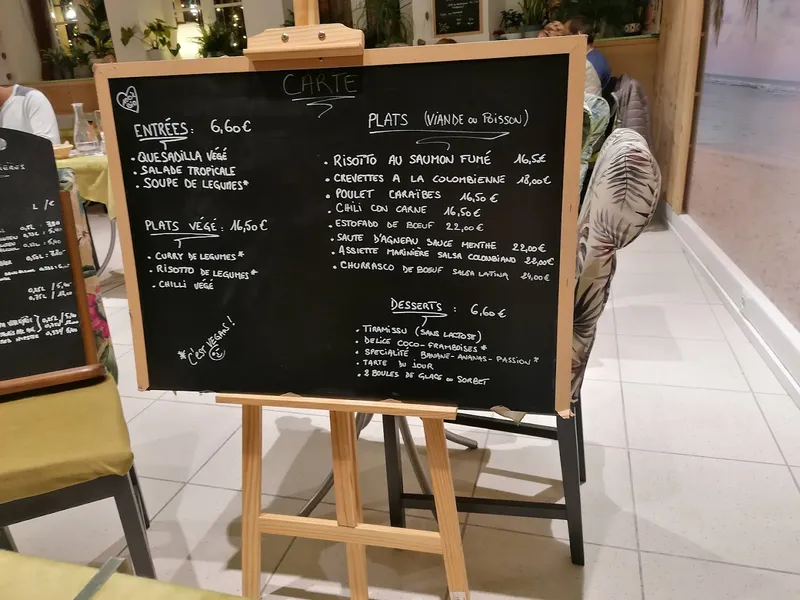 CARTE
ENTRÉES: 6,60€
• QUESADILLA VÉGÉ
• SALADE TROPICALE
• SOUPE DE LEGUMES*
PLATS VÉGÉ: 16,50€
• CURRY DE LEGUMES*
• RISOTTO DE LEGUMES*
• CHILLI VÉGÉ
*C'EST VÉGAN!
PLATS (VIANDE OU POISSON)
• RISOTTO AU SAUMON FUMÉ 16,5€
• CREVETTES A LA COLOMBIENNE 18,00€
• POULET CARAÏBES 16,50€
• CHILI CON CARNE 16,50€
• ESTOFADO DE BŒUF 22,00€
• SAUTE D'AGNEAU SAUCE MENTHE 22,00€
• ASSIETTE MARINIÈRE SALSA COLOMBIANO 22,00€
• CHURRASCO DE BŒUF SALSA LATINA 24,00€
DESSERTS: 6,60€
• TIRAMISSU (SANS LACTOSE)
• DELICE COCO-FRAMBOISES*
• SPECIALITÉ BANANE-ANANAS-PASSION*
• TARTE DU JOUR
• 2 BOULES DE GLACE OU SORBET